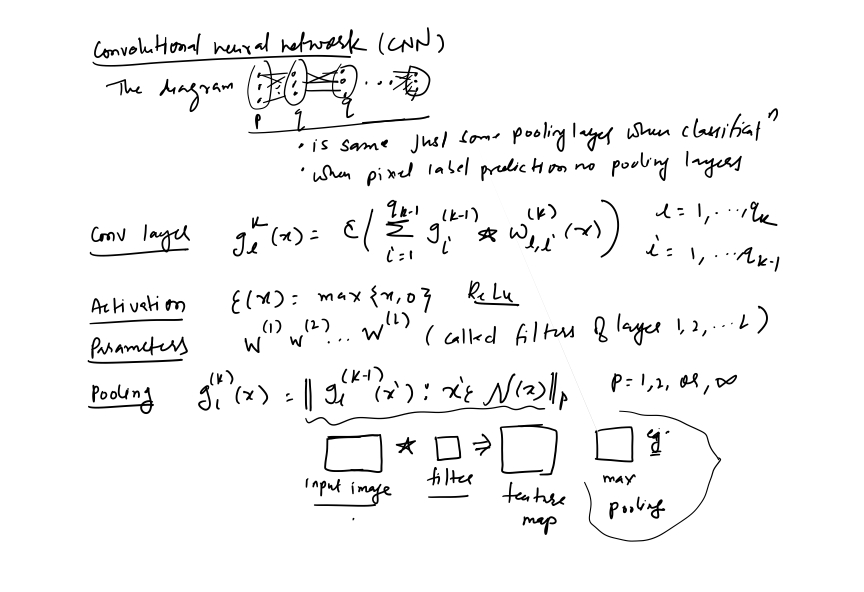 Convolutional neural network (CNN)
The diagram
p q q
• is same just some pooling layer when classificatⁿ
• when pixel label prediction no pooling layers
Conv layer g_l^k (x) = ξ( Σ_{i'=1}^{q_{k-1}} g_{i'}^{(k-1)} ★ w_{l,i'}^{(k)} (x) ) l = 1, ... q_k
i' = 1, ... q_{k-1}
Activation ξ(x) : max {x, 0} ReLu
Parameters W^{(1)} W^{(2)} ... W^{(L)} (called filters of layer 1, 2, ... L)
Pooling g_l^{(k)} (x) = ‖ g_l^{(k-1)} (x') : x' ε N(x) ‖_p p = 1, 2, or, ∞
★ ⇒ eg.
input image filter feature map max pooling